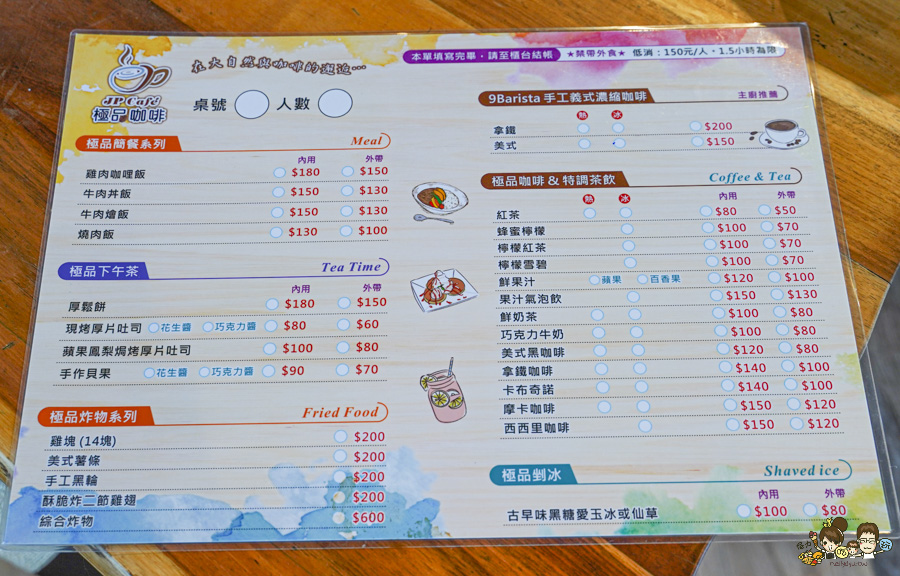 JP Café
極品咖啡
在大自然與咖啡的邂逅…
桌號 人數
極品簡餐系列 Meal
內用 外帶
雞肉咖哩飯 $180 $150
牛肉丼飯 $150 $130
牛肉燴飯 $150 $130
燒肉飯 $130 $100
極品下午茶 Tea Time
內用 外帶
厚鬆餅 $180 $150
現烤厚片吐司 花生醬 巧克力醬 $80 $60
蘋果鳳梨焗烤厚片吐司 $100 $80
手作貝果 花生醬 巧克力醬 $90 $70
極品炸物系列 Fried Food
雞塊 (14塊) $200
美式薯條 $200
手工黑輪 $200
酥脆炸二節雞翅 $200
綜合炸物 $600
本單填寫完畢,請至櫃台結帳 ★禁帶外食★ 低消:150元/人。1.5小時為限
9Barista 手工義式濃縮咖啡 主廚推薦
熱 冰
拿鐵 $200
美式 $150
極品咖啡 & 特調茶飲 Coffee & Tea
熱 冰 內用 外帶
紅茶 $80 $50
蜂蜜檸檬 $100 $70
檸檬紅茶 $100 $70
檸檬雪碧 $100 $70
鮮果汁 蘋果 百香果 $120 $100
果汁氣泡飲 $150 $130
鮮奶茶 $100 $80
巧克力牛奶 $100 $80
美式黑咖啡 $120 $80
拿鐵咖啡 $140 $100
卡布奇諾 $140 $100
摩卡咖啡 $150 $120
西西里咖啡 $150 $120
極品剉冰 Shaved ice
內用 外帶
古早味黑糖愛玉冰或仙草 $100 $80